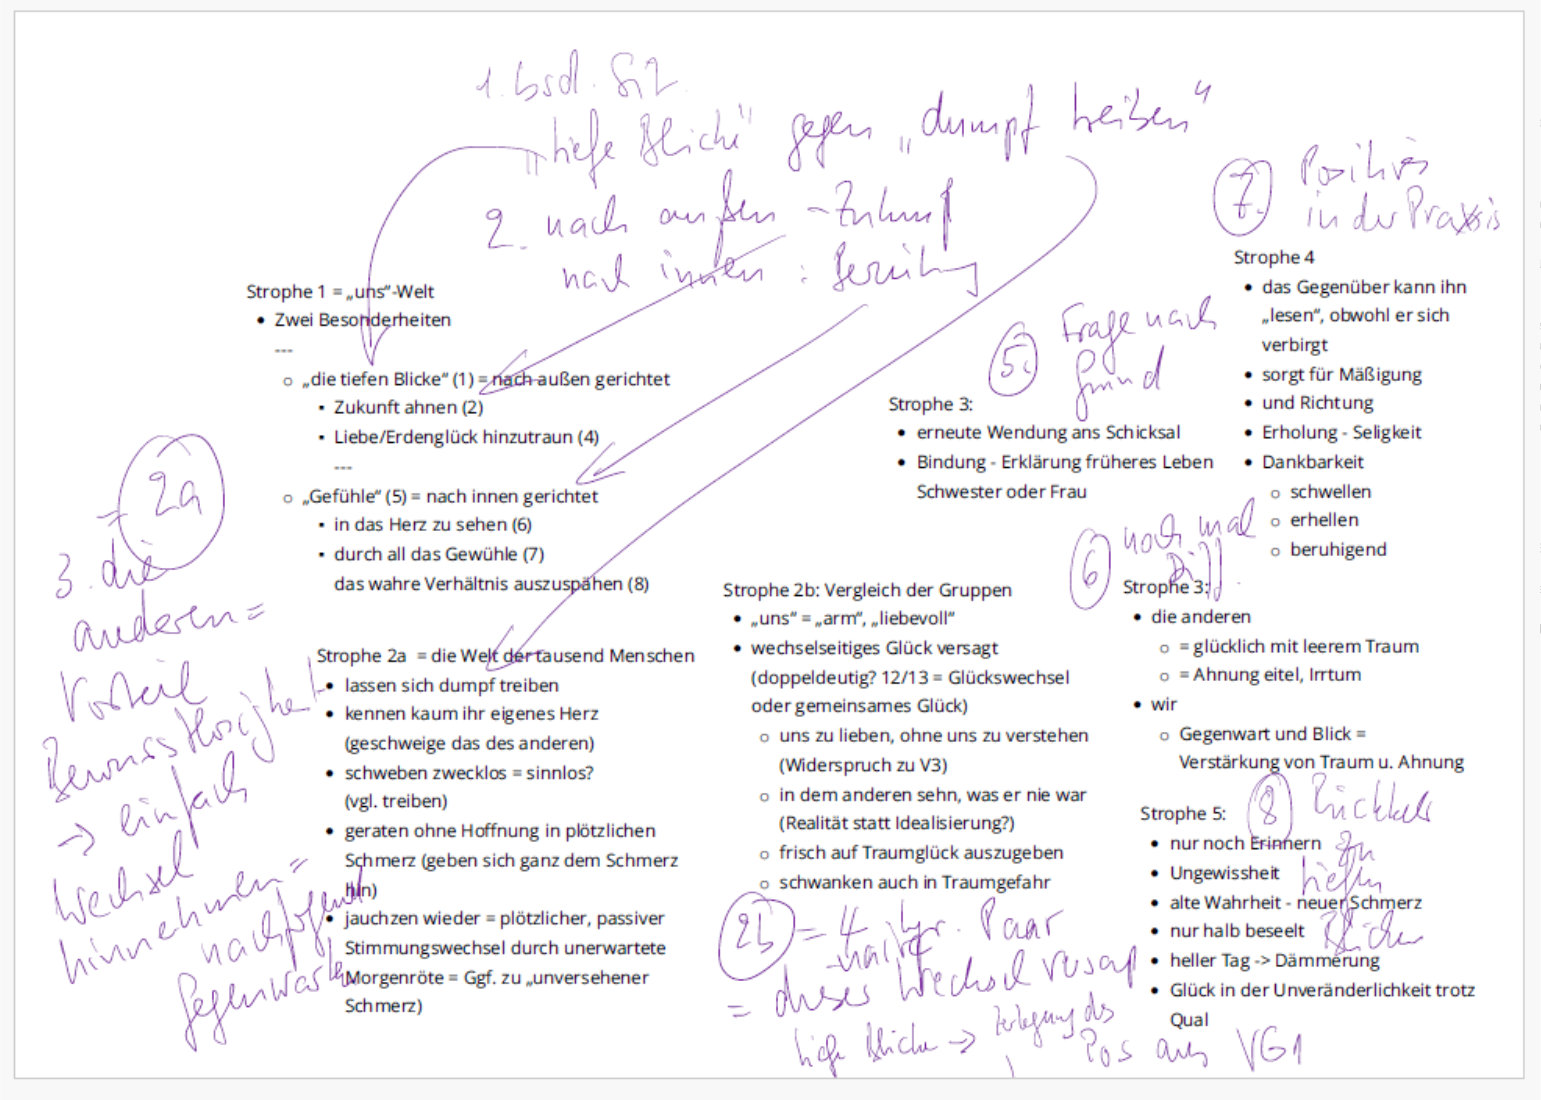 1. bsd. Sit.
„tiefe Blicke" gegen „dumpf treiben"
2. nach außen - Zukunft
nach innen : Beziehung
Strophe 1 = „uns"-Welt
• Zwei Besonderheiten
---
○ „die tiefen Blicke" (1) = nach außen gerichtet
▪ Zukunft ahnen (2)
▪ Liebe/Erdenglück hinzutraun (4)
---
○ „Gefühle" (5) = nach innen gerichtet
▪ in das Herz zu sehen (6)
▪ durch all das Gewühle (7)
das wahre Verhältnis auszuspähen (8)
= 2a
3. die
anderen =
Vorteil
Bewusstlosigkeit
-> einfach
Wechsel
hinnehmen =
nachfolgend
Gegenwart
Strophe 2a = die Welt der tausend Menschen
• lassen sich dumpf treiben
• kennen kaum ihr eigenes Herz
(geschweige das des anderen)
• schweben zwecklos = sinnlos?
(vgl. treiben)
• geraten ohne Hoffnung in plötzlichen
Schmerz (geben sich ganz dem Schmerz
hin)
• jauchzen wieder = plötzlicher, passiver
Stimmungswechsel durch unerwartete
Morgenröte = Ggf. zu „unversehener
Schmerz)
Strophe 2b: Vergleich der Gruppen
• „uns" = „arm", „liebevoll"
• wechselseitiges Glück versagt
(doppeldeutig? 12/13 = Glückswechsel
oder gemeinsames Glück)
○ uns zu lieben, ohne uns zu verstehen
(Widerspruch zu V3)
○ in dem anderen sehn, was er nie war
(Realität statt Idealisierung?)
○ frisch auf Traumglück auszugeben
○ schwanken auch in Traumgefahr
2b = 4 lyr. Paar
naive
= dieser Wechsel versagt
tiefe Blicke -> Zerlegung des
Pos aus VG1
5. Frage nach
Grund
Strophe 3:
• erneute Wendung ans Schicksal
• Bindung - Erklärung früheres Leben
Schwester oder Frau
7. Positives
in der Praxis
Strophe 4
• das Gegenüber kann ihn
„lesen", obwohl er sich
verbirgt
• sorgt für Mäßigung
• und Richtung
• Erholung - Seligkeit
• Dankbarkeit
○ schwellen
○ erhellen
○ beruhigend
6 noch mal
Diff.
Strophe 3:
• die anderen
○ = glücklich mit leerem Traum
○ = Ahnung eitel, Irrtum
• wir
○ Gegenwart und Blick =
Verstärkung von Traum u. Ahnung
8 Rückkehr
zu
tiefen
Blicken
Strophe 5:
• nur noch Erinnern
• Ungewissheit
• alte Wahrheit - neuer Schmerz
• nur halb beseelt
• heller Tag -> Dämmerung
• Glück in der Unveränderlichkeit trotz
Qual